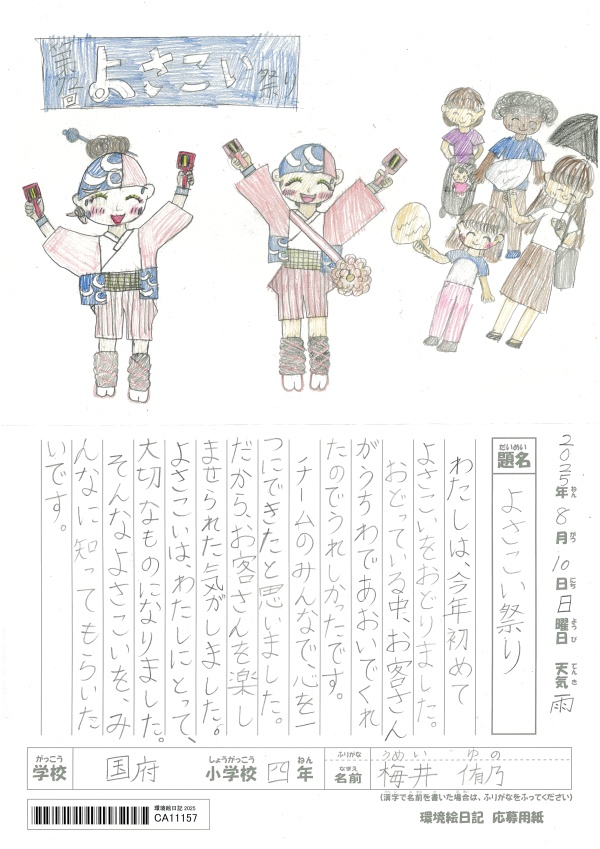 第72回 よさこい祭り
2025年8月10日日曜日 天気雨
ねん がつ にち ようび てんき
だいめい
題名 よさこい祭り
わたしは、今年初めて
よさこいをおどりました。
おどっている中、お客さん
がうちわであおいでくれ
たのでうれしかったです。
チームのみんなで、心を一
つにできたと思いました。
だから、お客さんを楽し
ませられた気がしました。
よさこいは、わたしにとって、
大切なものになりました。
そんなよさこいを、み
んなに知ってもらいた
いです。
がっこう しょうがっこう ねん
学校 国府 小学校 四年
ふりがな うめい ゆの
なまえ
名前 梅井 侑乃
(漢字で名前を書いた場合は、ふりがなをふってください)
環境絵日記 応募用紙
環境絵日記 2025
CA11157